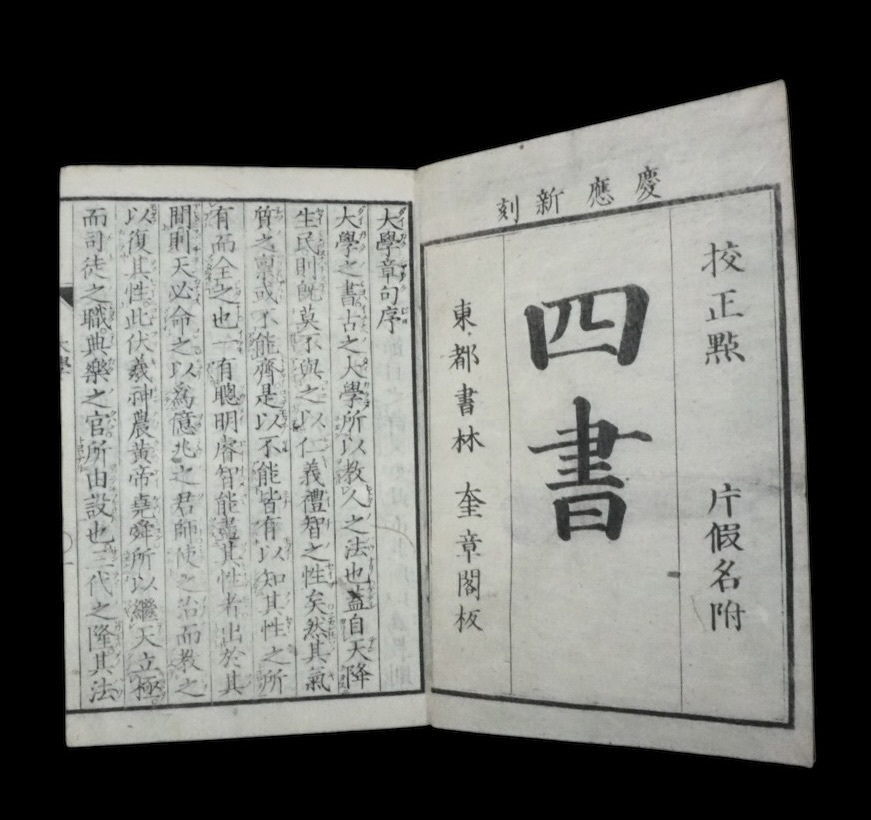 慶應新刻
校正點 片假名附
四書
東都書林 奎章閣板
大學章句序
大學之書古之大學所以教人之法也蓋自天降
生民則旣莫不與之以仁義禮智之性矣然其氣
質之稟或不能齊是以不能皆有以知其性之所
有而全之也一有聰明睿智能盡其性者出於其
閒則天必命之以爲億兆之君師使之治而教之
以復其性此伏羲神農黃帝堯舜所以繼天立極
而司徒之職典樂之官所由設也三代之隆其法
大學